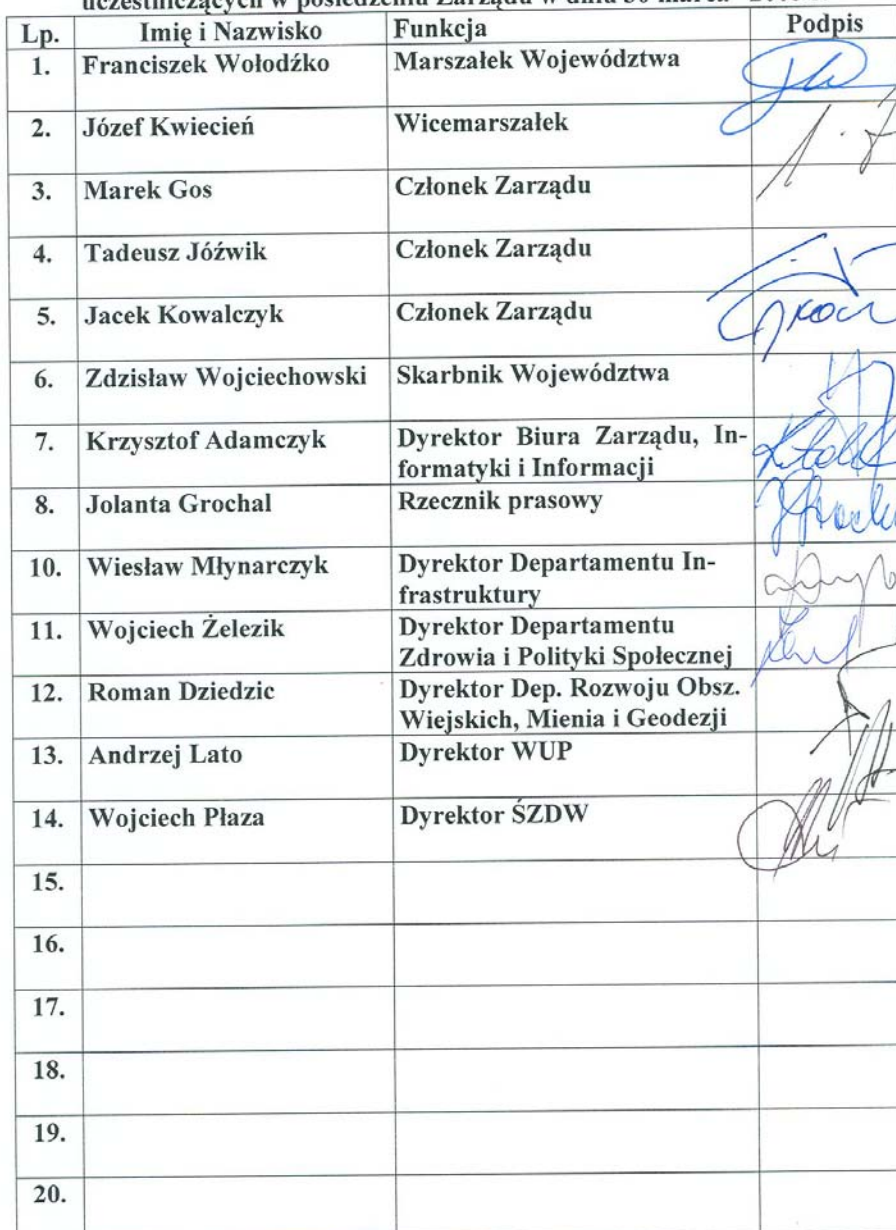 uczestniczących w posiedzeniu Zarządu w dniu 30 marca
Lp. Imię i Nazwisko Funkcja Podpis
1. Franciszek Wołodźko Marszałek Województwa
2. Józef Kwiecień Wicemarszałek
3. Marek Gos Członek Zarządu
4. Tadeusz Jóźwik Członek Zarządu
5. Jacek Kowalczyk Członek Zarządu
6. Zdzisław Wojciechowski Skarbnik Województwa
7. Krzysztof Adamczyk Dyrektor Biura Zarządu, In-
formatyki i Informacji
8. Jolanta Grochal Rzecznik prasowy
10. Wiesław Młynarczyk Dyrektor Departamentu In-
frastruktury
11. Wojciech Żelezik Dyrektor Departamentu
Zdrowia i Polityki Społecznej
12. Roman Dziedzic Dyrektor Dep. Rozwoju Obsz.
Wiejskich, Mienia i Geodezji
13. Andrzej Lato Dyrektor WUP
14. Wojciech Płaza Dyrektor ŚZDW
15.
16.
17.
18.
19.
20.